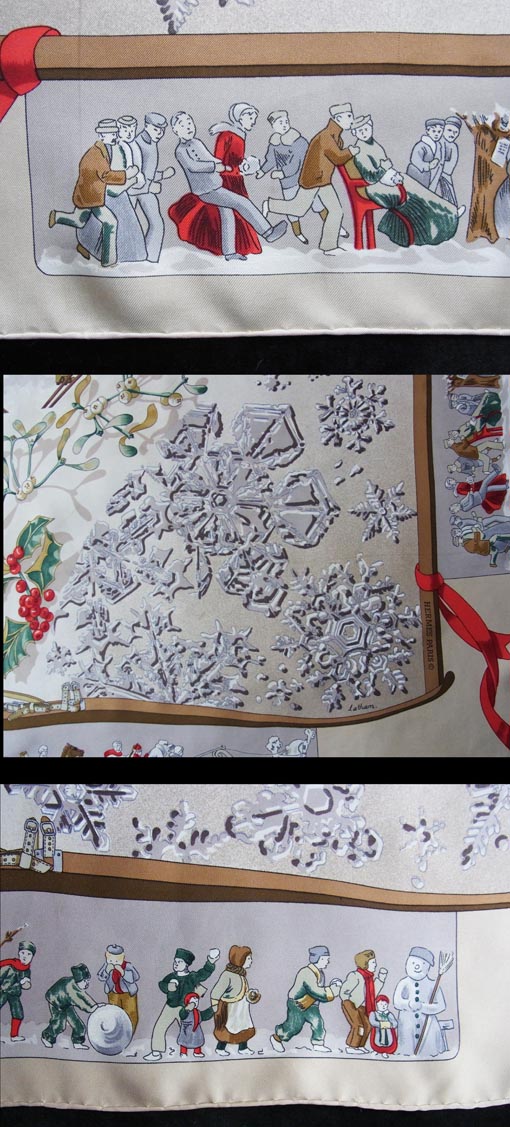 HERMES-PARIS ©
Latham.